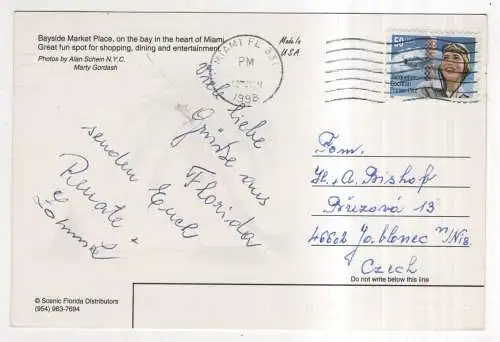 Bayside Market Place, on the bay in the heart of Miami.
Great fun spot for shopping, dining and entertainment.
Photos by Alan Schein N.Y.C.
Marty Gordash
Made in
U.S.A.
MIAMI FL 331
PM
1998
50
Jacqueline
Cochran
Pioneer Pilot
Viele liebe
Grüße aus
Florida
senden Euch
Renate +
Fam.
H. A. Bishof
Březová 13
46602 Jablonec n/Nis.
Czech
Do not write below this line
© Scenic Florida Distributors
(954) 963-7694